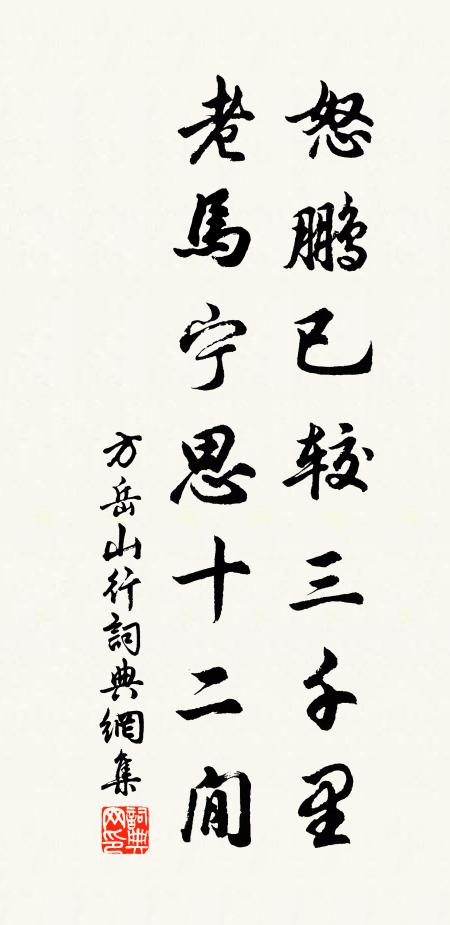 怒鹏已较三千里
老馬宁思十二閒
方岳山行詞典網集
詞典网印